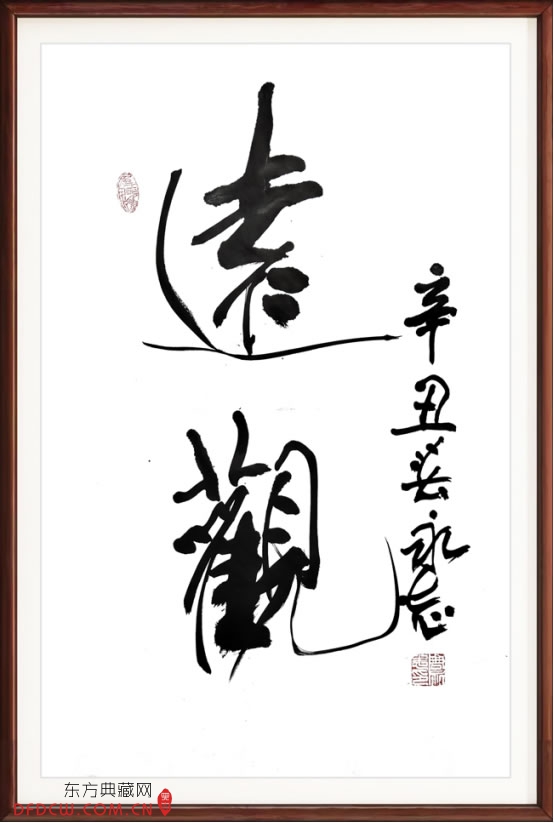 遠觀
辛丑 永
东方典藏网
DFDCW.COM.CN